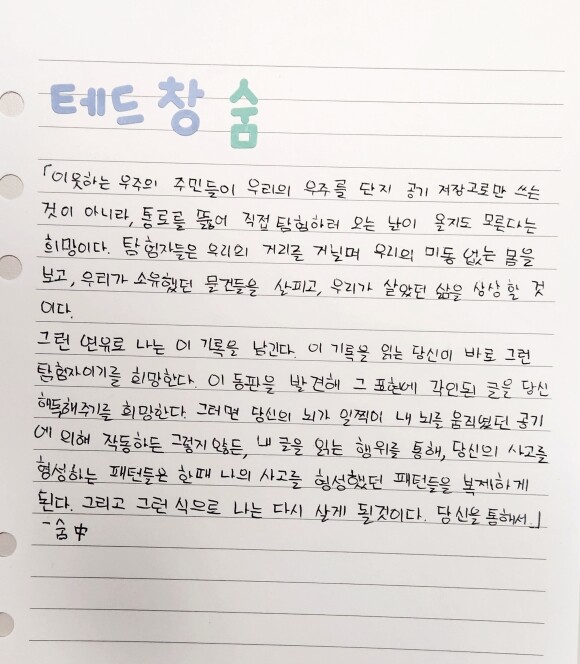 테드 창 숨
「이웃하는 우주의 주민들이 우리의 우주를 단지 공기 저장고로만 쓰는
것이 아니라, 통로를 뚫어 직접 탐험하러 오는 날이 올지도 모른다는
희망이다. 탐험자들은 우리의 거리를 거닐며 우리의 미동 없는 몸을
보고, 우리가 소유했던 물건들을 살피고, 우리가 살았던 삶을 상상할 것
이다.
그런 연유로 나는 이 기록을 남긴다. 이 기록을 읽는 당신이 바로 그런
탐험자이기를 희망한다. 이 동판을 발견해 그 표현에 각인된 글을 당신
해독해주기를 희망한다. 그러면 당신의 뇌가 일찍이 내 뇌를 움직였던 공기
에 의해 작동하든 그렇지 않든, 내 글을 읽는 행위를 통해, 당신의 사고를
형성하는 패턴들은 한때 나의 사고를 형성했던 패턴들을 복제하게
된다. 그리고 그런 식으로 나는 다시 살게 될것이다. 당신을 통해서.」
- 숨 中